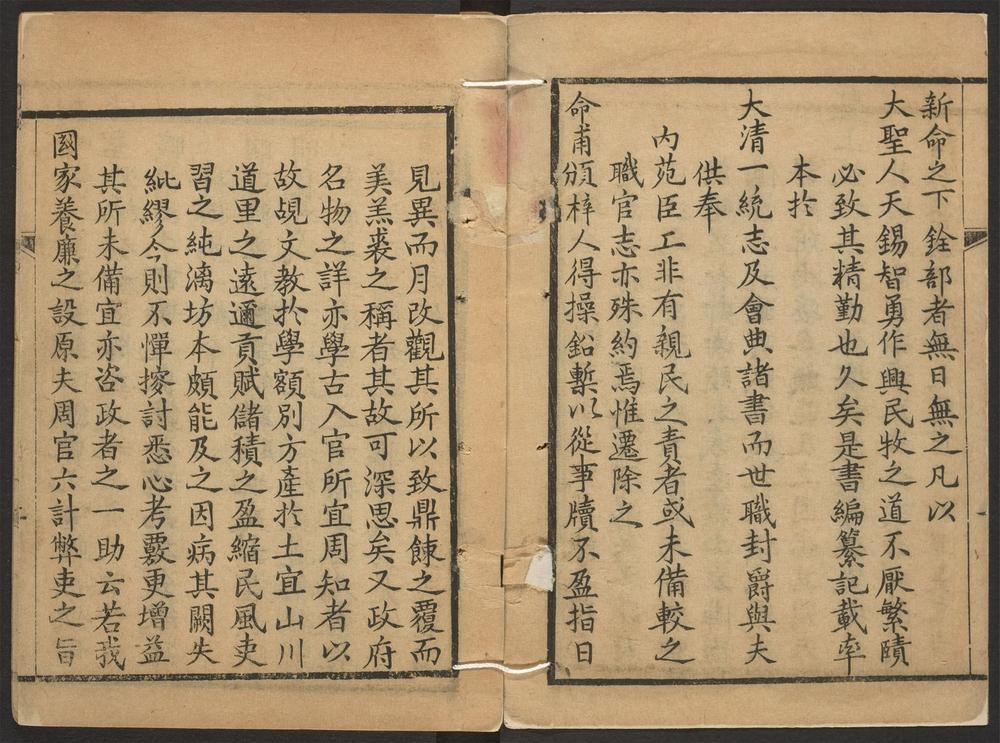 新命之下銓部者無日無之凡以
大聖人天錫智勇作興民牧之道不厭繁賾
必致其精勤也久矣是書編纂記載率
本於
大清一統志及會典諸書而世職封爵與夫
供奉
內苑臣工非有親民之責者或未備較之
職官志亦殊約焉惟遷除之
命甫頒梓人得操鉛槧以從事牘不盈指日
見異而月改觀其所以致鼎餗之覆而
美羔裘之稱者其故可深思矣又政府
名物之詳亦學古入官所宜周知者以
故覘文教於學額別方產於土宜山川
道里之遠邇貢賦儲積之盈縮民風吏
習之純漓坊本頗能及之因病其闕失
紕繆今則不憚搜討悉心考覈更增益
其所未備宜亦咨政者之一助云若我
國家養廉之設原夫周官六計弊吏之旨